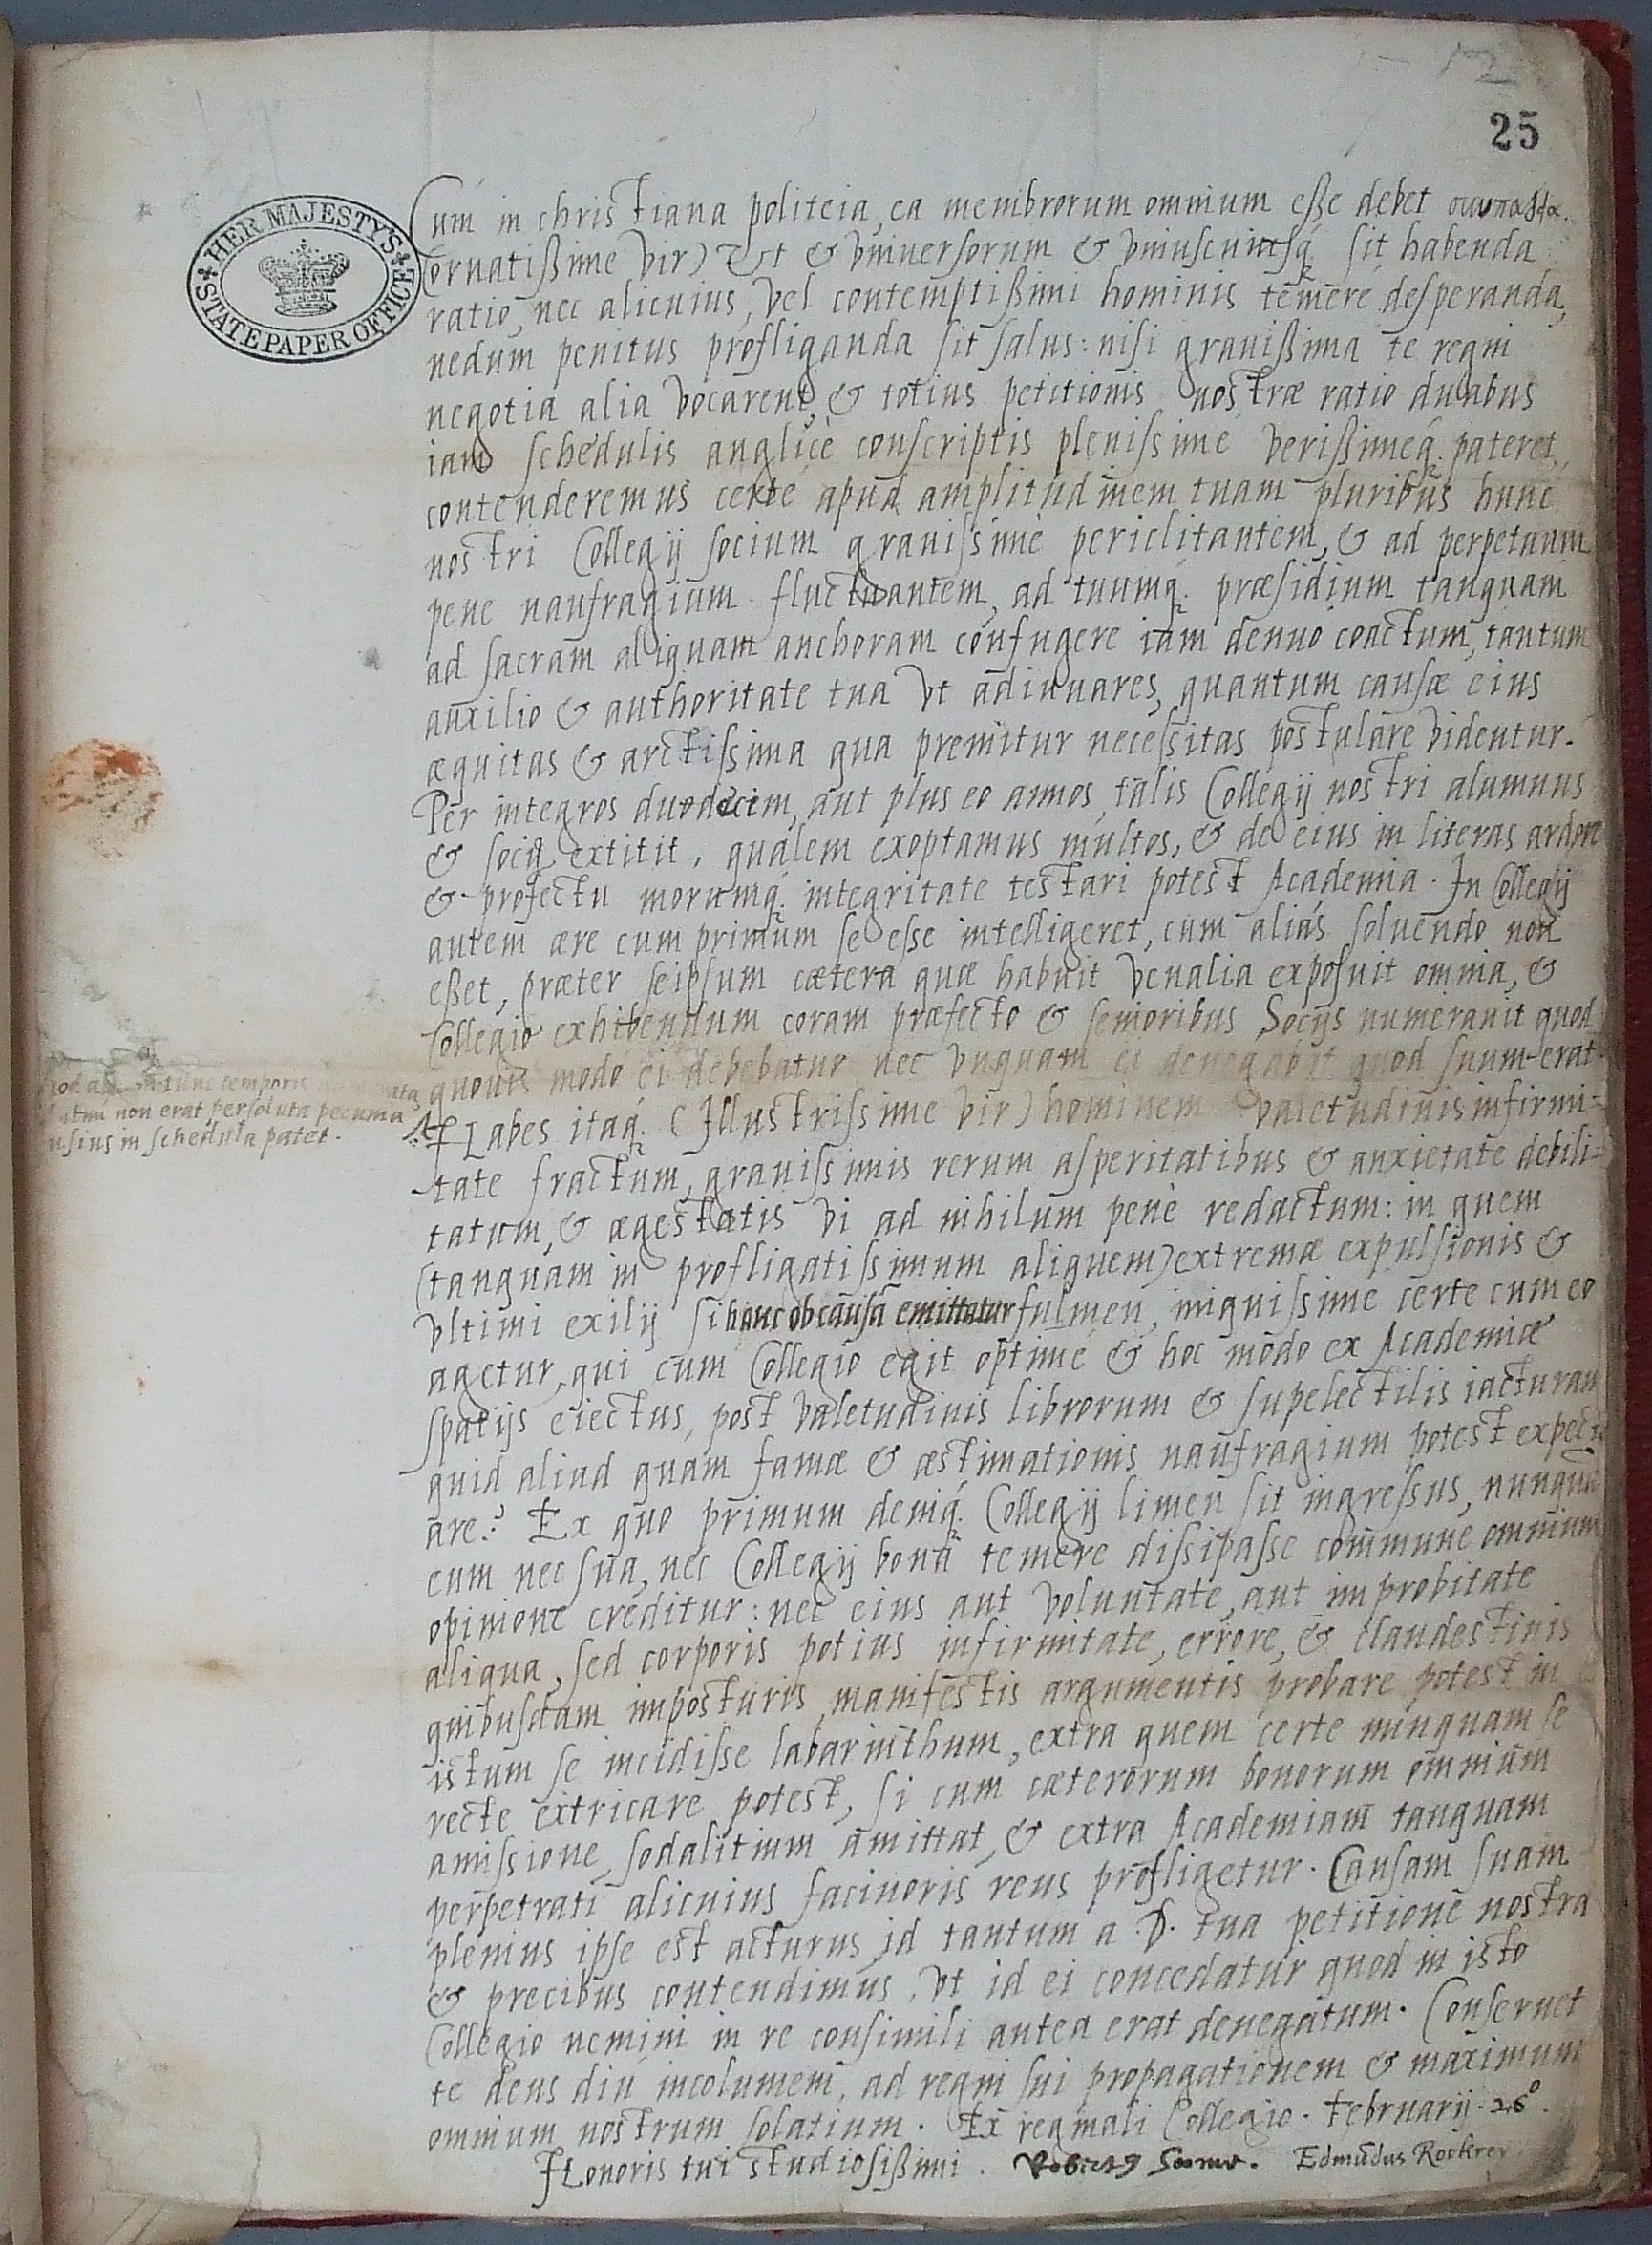 25
HER MAJESTY'S
STATE PAPER OFFICE
Cum in christiana politeia, ea membrorum omnium eſſe debet συμπαθια.
(ornatißime vir) vt & vniuerſorum & vniuſcuiuſq́ sit habenda
ratio, nec alicuius, vel contemptißimi hominis temere deſperanda,
nedum penitus profliganda ſit ſalus: niſi grauißima te regni
negotia alia vocarent, & totius petitionis nostræ ratio duabus
iam ſchedulis anglicè conſcriptis pleniſsime verißimeq́. pateret,
contenderemus certe apud amplitudinem tuam pluribus hunc
nostri Collegij ſocium grauiſsimè periclitantem, & ad perpetuum
pene naufragium fluctuantem, ad tuumq́. præſidium tanquam
ad ſacram aliquam anchoram confugere iam denuo coactum, tantum
auxilio & authoritate tua vt adiuuares, quantum cauſæ eius
æquitas & arctiſsima qua premitur neceſsitas poſtulare videntur.
Per integros duodecim, aut plus eo annos, talis Collegij nostri alumnus
& ſociꝰ extitit, qualem exoptamus multos, & de eius in literas ardore
& profectu morumq́. integritate testari potest Academia. In Collegij
autem ære cum primum ſe eſse intelligeret, cum aliàs ſoluendo non
eßet, præter ſeipſum cætera quæ habuit venalia expoſuit omnia, &
Collegio exhibendum coram præfecto & ſenioribus Socijs numerauit quod
quouis modo ei debebatur nec vnquam ei denegabat quod ſuum erat.
tunc temporis
non erat perſoluta pecunia
in ſchedula patet.
Habes itaq́. (Illustriſsime vir) hominem valetudinis infirmi=
tate fractum, grauiſsimis rerum aſperitatibus & anxietate debili=
tatum, & ægestatis vi ad nihilum penè redactum: in quem
(tanquam in profligatiſsimum aliquem) extremæ expulſionis &
vltimi exilij ſi hanc ob cauſã emittatur fulmen, iniquiſsime certe cum eo
agetur, qui cum Collegio egit optimè & hoc modo ex Academiæ
ſpatijs eiectus, post valetudinis librorum & ſupelectilis iacturam
quid aliud quam famæ & æstimationis naufragium potest expect
are? Ex quo primum deniq́. Collegij limen ſit ingreſsus, nunquã
eum nec ſua, nec Collegij bona temere diſsipaſse commune omnium
opinione creditur: nec eius aut voluntate, aut improbitate
aliqua, ſed corporis potius infirmitate, errore, & clandestinis
quibuſdam imposturis, manifestis argumentis probare potest in
istum ſe incidiſse labarinthum, extra quem certe nunquam ſe
recte extricare potest, ſi cum cæterorum bonorum omnium
amiſsione, ſodalitium amittat, & extra Academiam tanquam
perpetrati alicuius facinoris reus profligetur. Cauſam ſuam
plenius ipſe est acturus, id tantum a D. tua petitione nostra
& precibus contendimus, vt id ei concedatur quod in isto
Collegio nemini in re conſimili antea erat denegatum. Conſeruet
te deus diu incolumem, ad regni ſui propagationem & maximum
omnium nostrum ſolatium. Ex reginali Collegio. Februarij. 26º.
Honoris tui studioſißimi. Robertꝰ Some. Edmũdus Rockrey